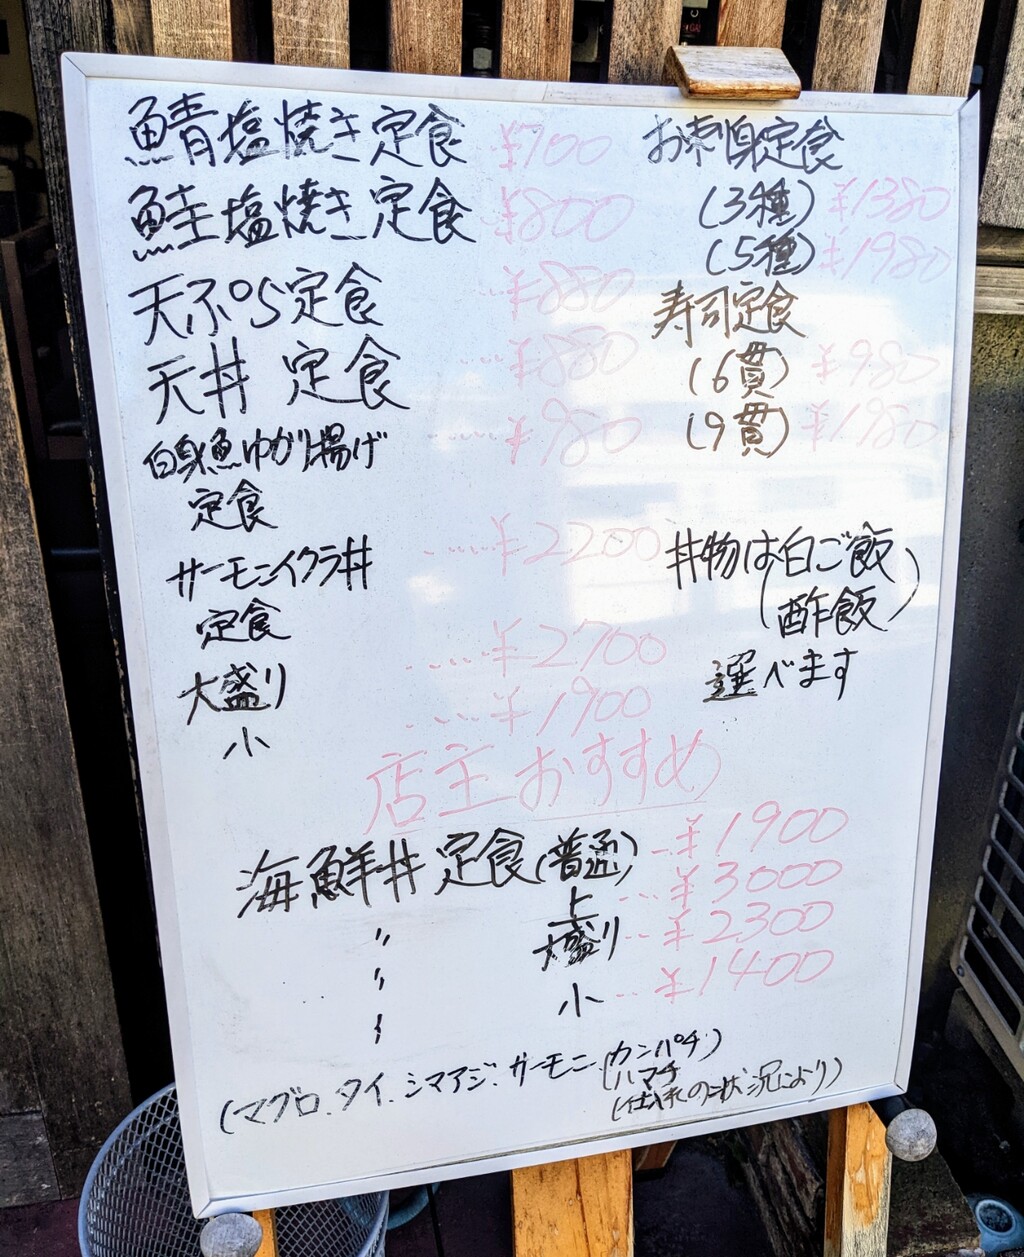 鯖塩焼き定食 ¥700
鮭塩焼き定食 ¥800
天ぷら定食 ...¥880
天丼 定食 ....¥880
白身魚ゆかり揚げ ......¥980
定食
サーモンイクラ丼 ......¥2200
定食
大盛り ......¥2700
小 ......¥1900
お刺身定食
(3種) ¥1380
(5種) ¥1980
寿司定食
(6貫) ¥980
(9貫) ¥1980
丼物は白ご飯
(酢飯)
選べます
店主おすすめ
海鮮丼定食(普通) ...¥1900
〃 上 ...¥3000
〃 大盛り ...¥2300
〃 小 ...¥1400
(マグロ、タイ、シマアジ、サーモン、(カンパチ)
(ハマチ
(仕入れの状況により)